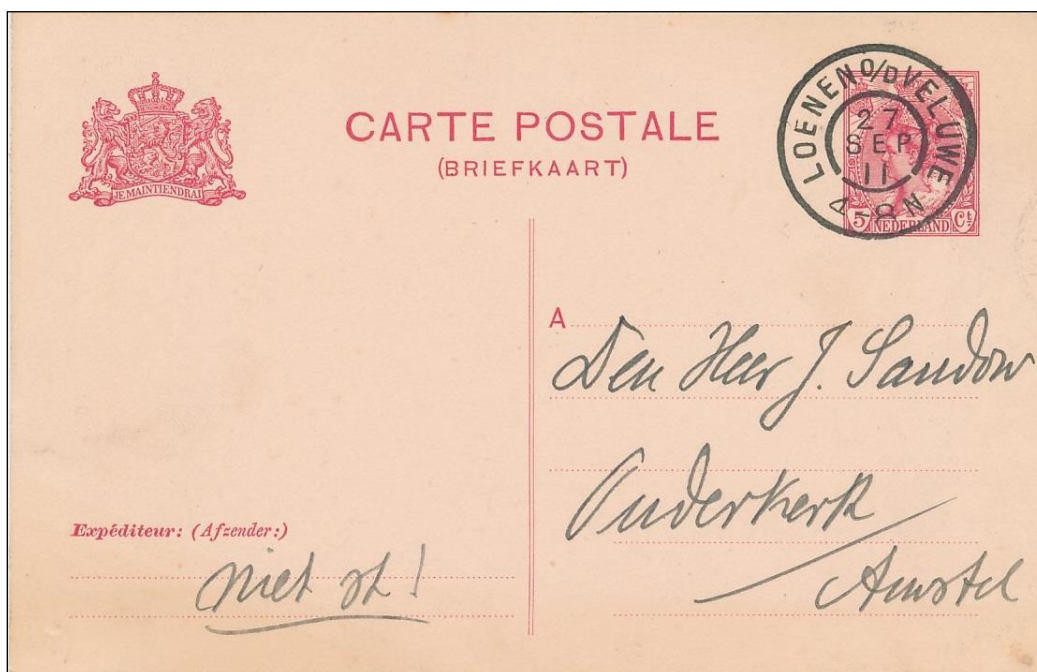 JE MAINTIENDRAI
CARTE POSTALE
(BRIEFKAART)
LOENEN O/D VELUWE
27
SEP
11
7-8N
5 Ct
NEDERLAND
A
Den Heer J. Sandow
Ouderkerk
Amstel
Expéditeur: (Afzender:)
niet